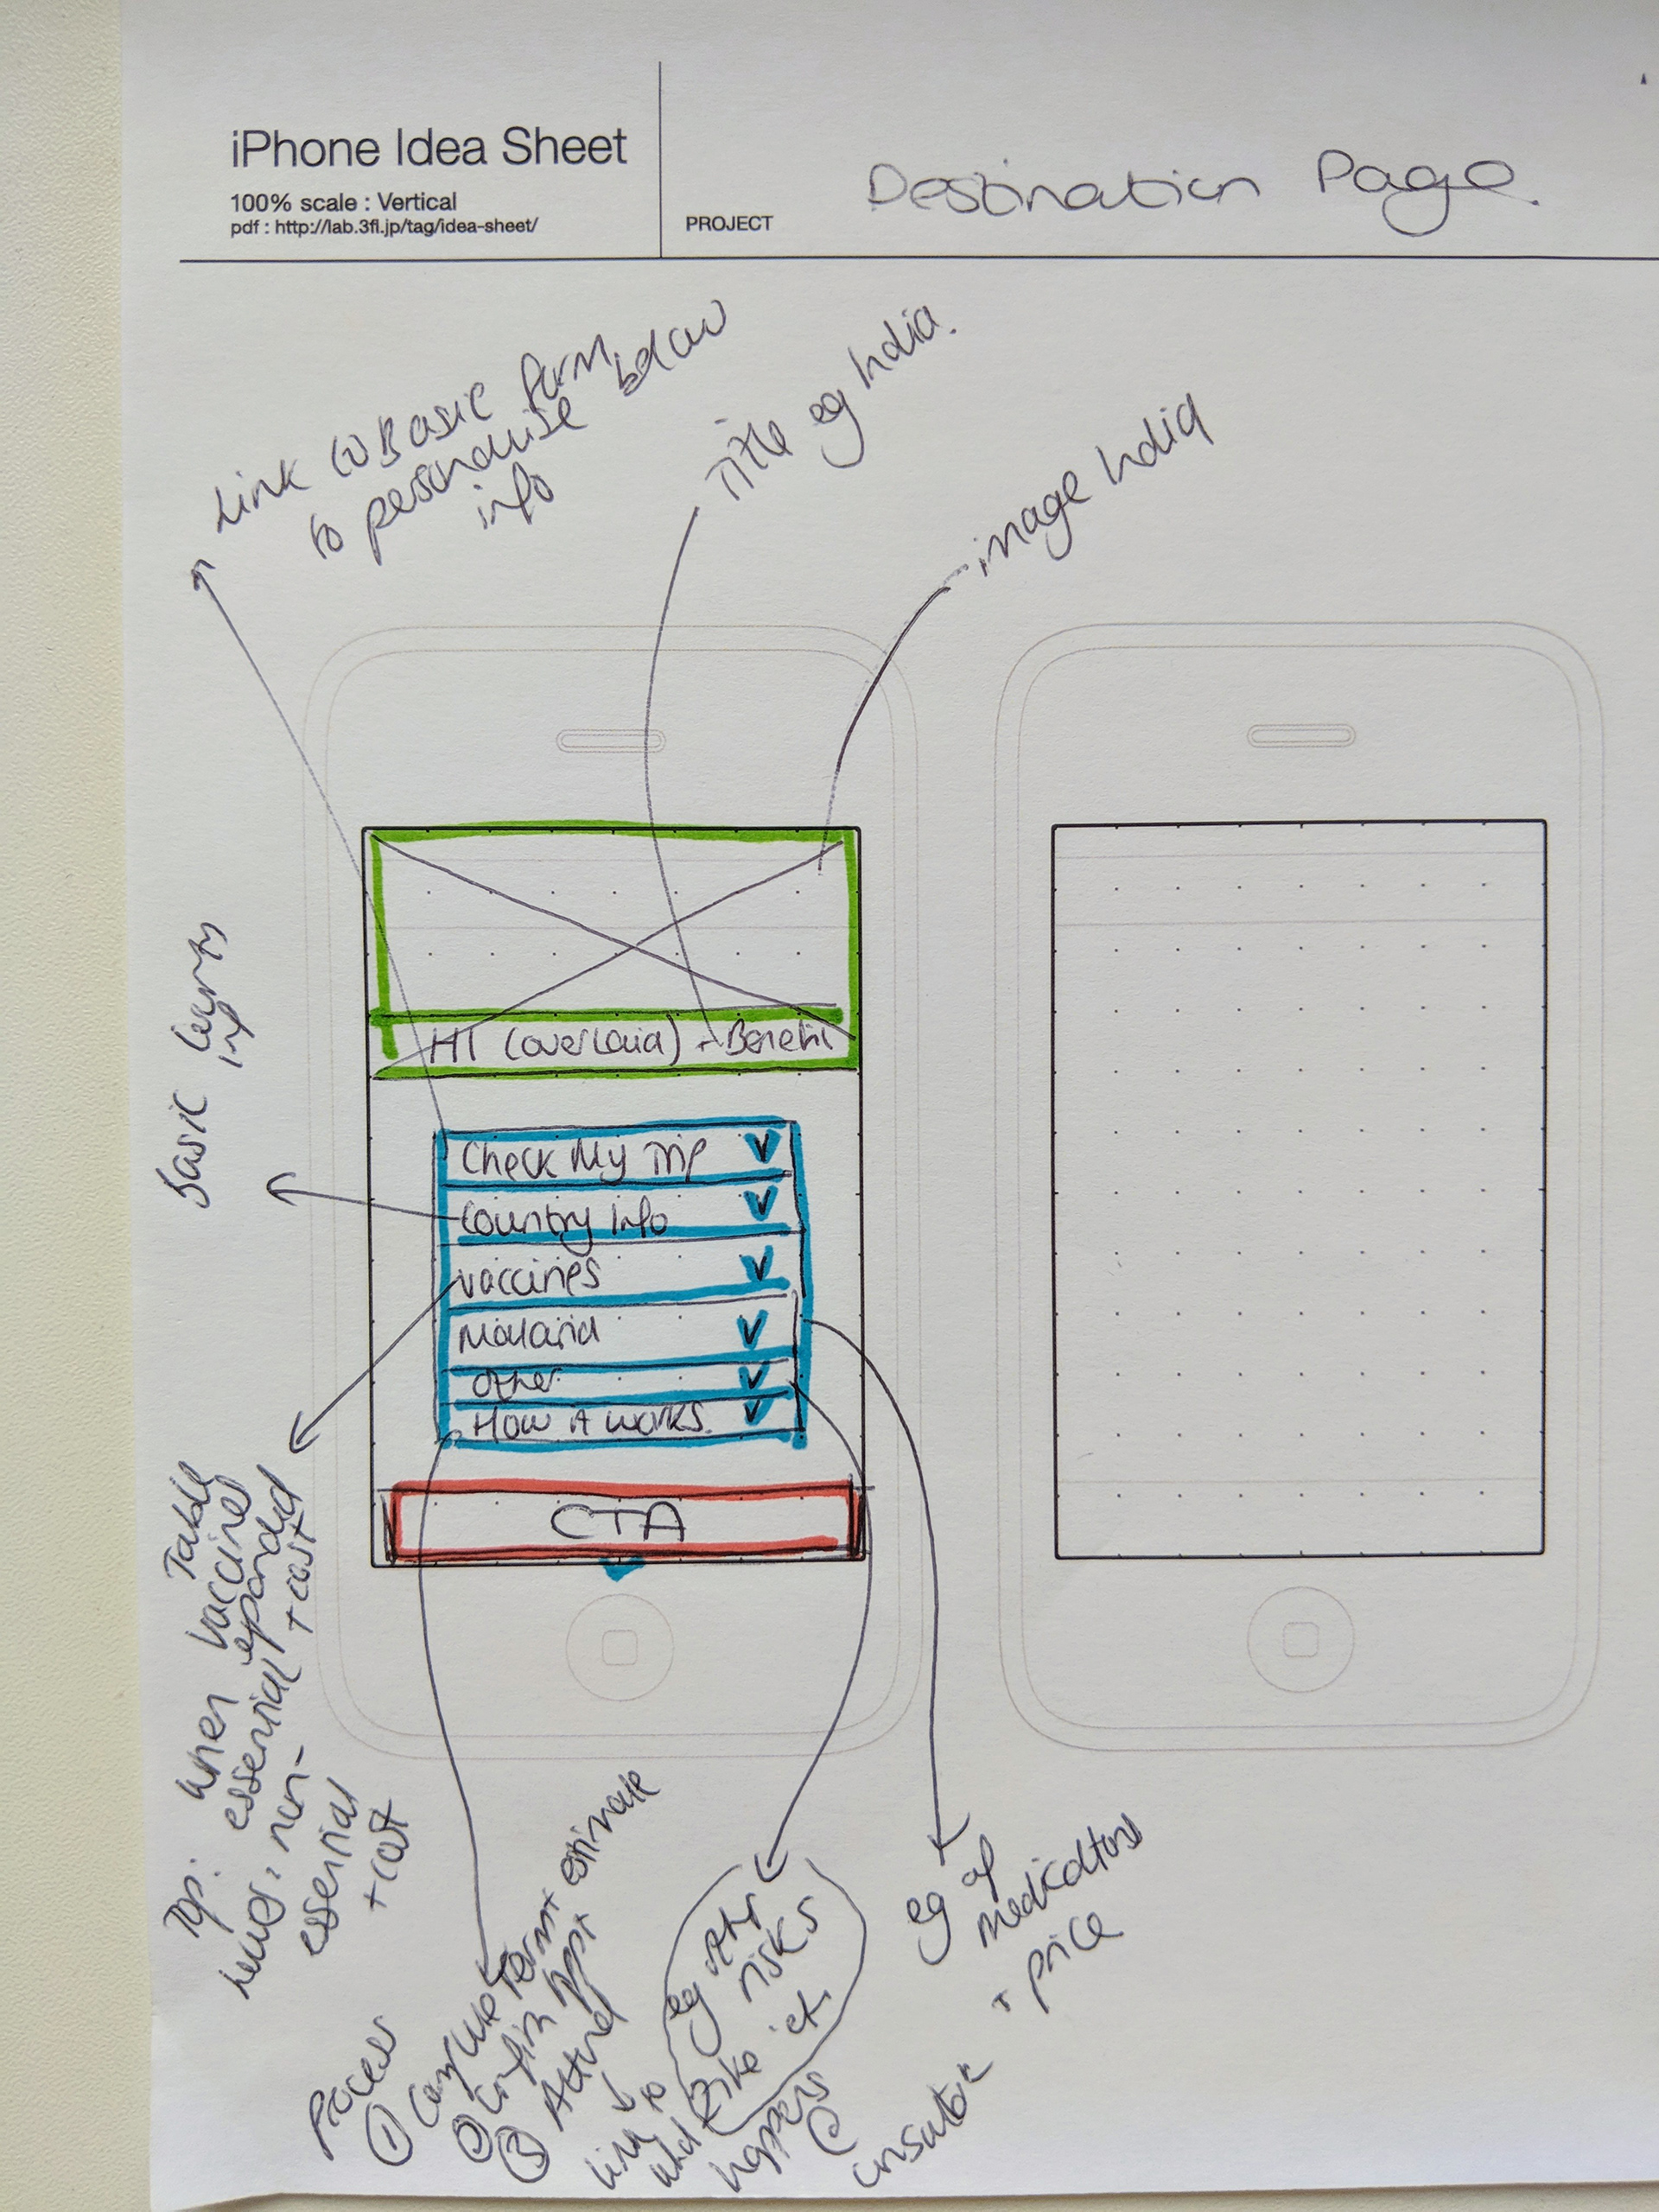 iPhone Idea Sheet
100% scale : Vertical
pdf : http://lab.3fl.jp/tag/idea-sheet/
PROJECT
Destination Page
Link to Basic form
to personalise below
info
Title eg India.
image India
H1 (overlaid) + Benefit
Check My Trip
Country Info
Vaccines
Malaria
Other
How it works.
CTA
Basic country
info
Table
when vaccines expanded
Top: essential + cost
lower: non-
essential
+ cost
Process
① Complete form + estimate
② Confirm appt
③ Attend
link to
what happens @
consultation
eg other
risks
Zika etc
eg of
medications
+ price